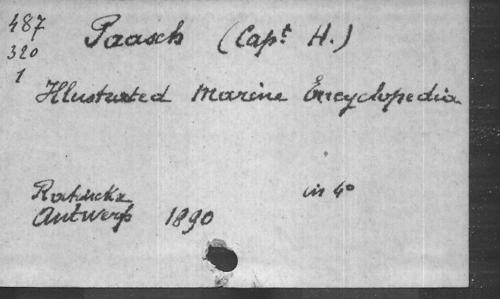 487
320
1
Paasch (Capt H.)
Illustrated Marine Encyclopedia
in 4o
Antwerp 1890